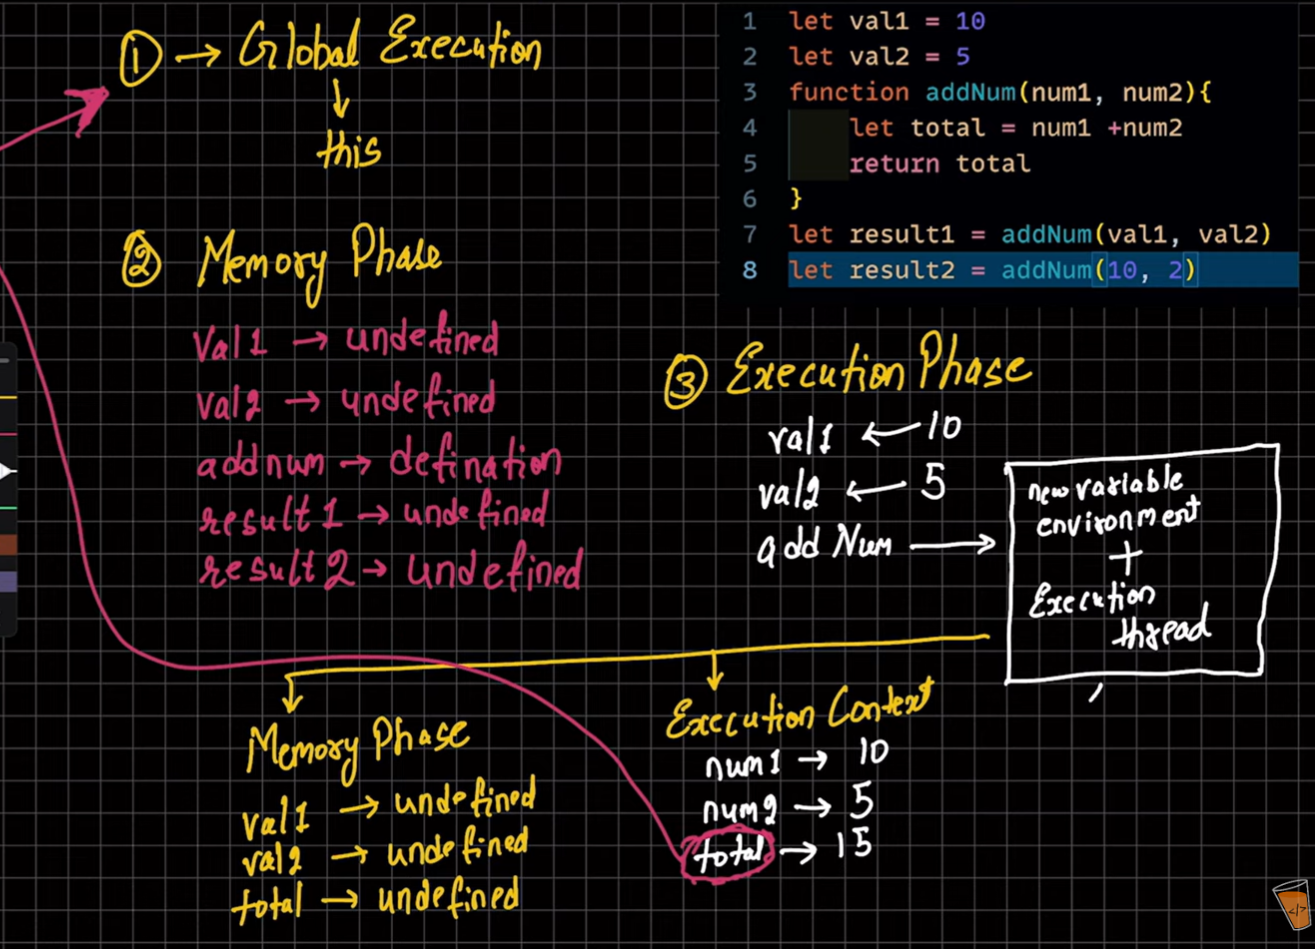 ① → Global Execution
↓
this
1 let val1 = 10
2 let val2 = 5
3 function addNum(num1, num2){
4 let total = num1 +num2
5 return total
6 }
7 let result1 = addNum(val1, val2)
8 let result2 = addNum(10, 2)
② Memory Phase
Val1 → undefined
val2 → undefined
addnum → defination
result1 → undefined
result2 → undefined
③ Execution Phase
val1 ← 10
val2 ← 5
add Num →
new variable
environment
+
Execution
thread
Memory Phase
val1 → undefined
val2 → undefined
total → undefined
Execution Context
num1 → 10
num2 → 5
total → 15
</>